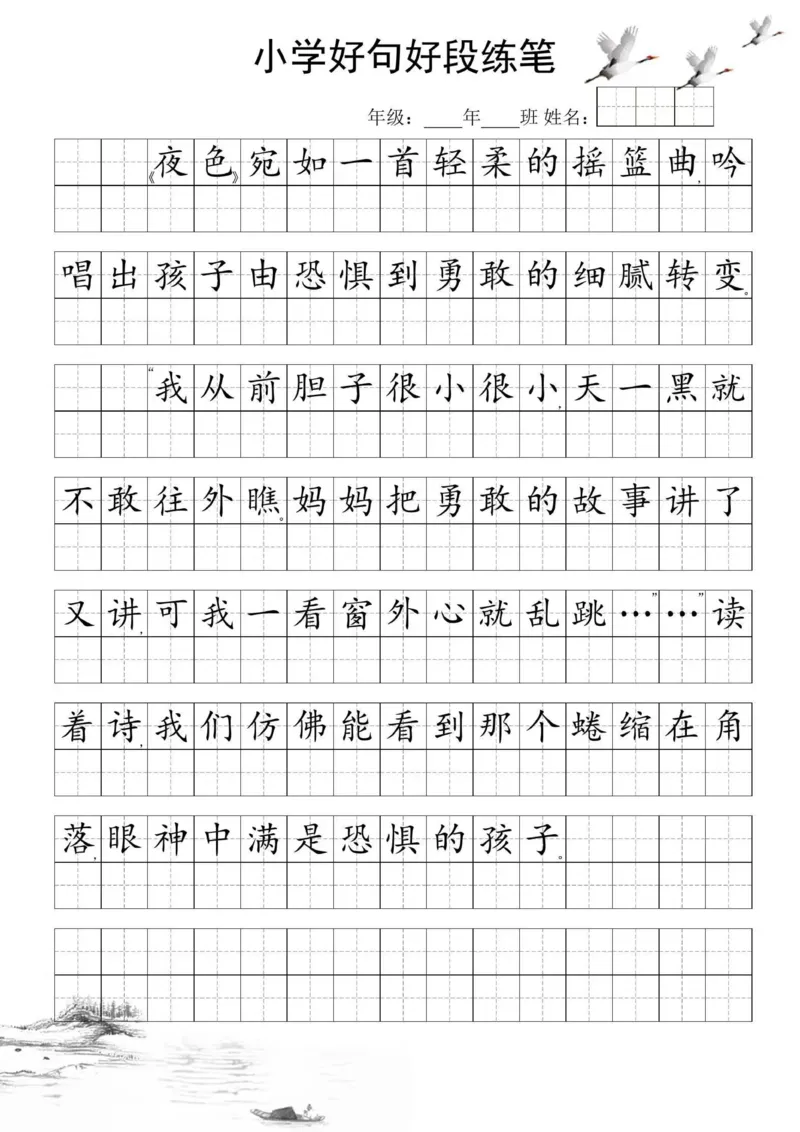 小学好句好段练笔
年级：____年____班 姓名：
《夜色》宛如一首轻柔的摇篮曲，吟
唱出孩子由恐惧到勇敢的细腻转变。
“我从前胆子很小很小，天一黑就
不敢往外瞧。妈妈把勇敢的故事讲了
又讲，可我一看窗外心就乱跳…”…”读
着诗，我们仿佛能看到那个蜷缩在角
落，眼神中满是恐惧的孩子。